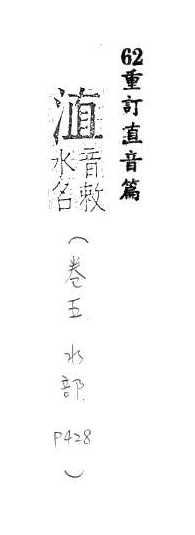 62重訂直音篇
淔
音敕
水名
(卷五 水部 P428)